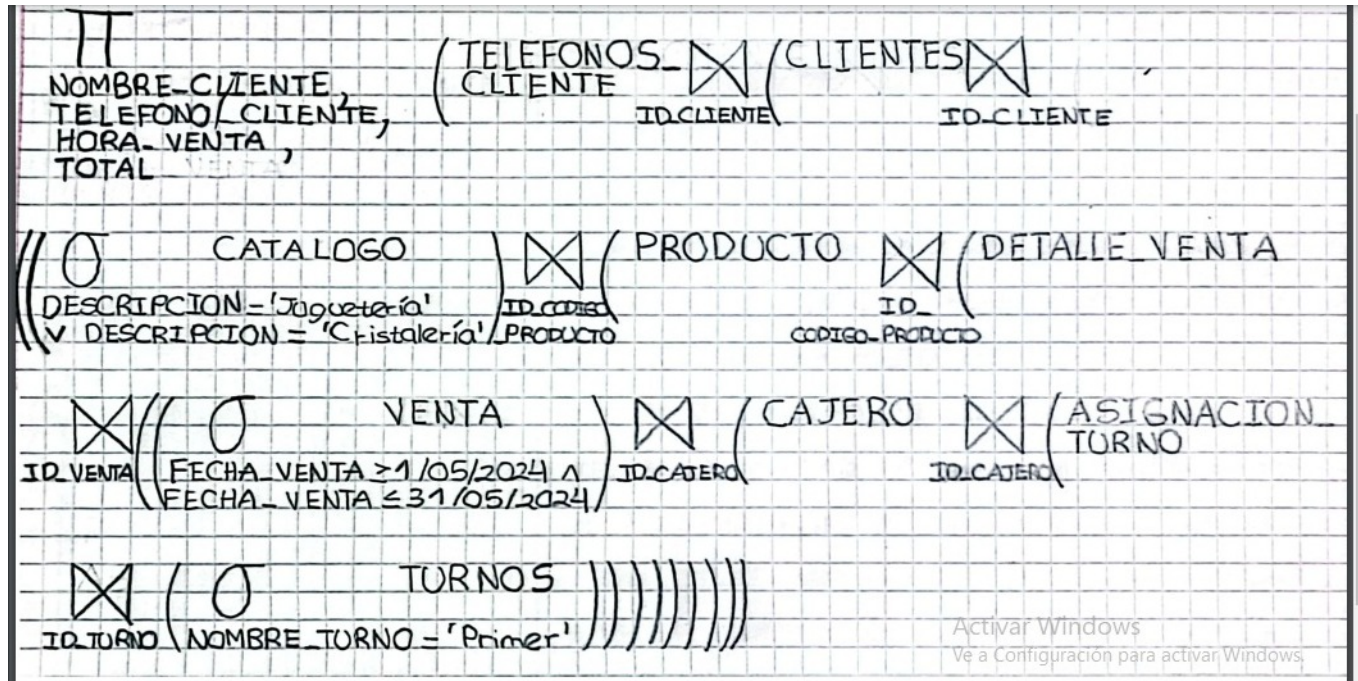 π
NOMBRE_CLIENTE,
TELEFONO_CLIENTE,
HORA_VENTA,
TOTAL
(TELEFONOS_CLIENTE ⋈ ID_CLIENTE (CLIENTES ⋈ ID_CLIENTE
(((σ DESCRIPCION = 'Juguetería'
∨ DESCRIPCION = 'Cristalería' CATALOGO) ⋈ ID_CODIGO PRODUCTO (PRODUCTO ⋈ ID_CODIGO_PRODUCTO (DETALLE_VENTA
⋈ ID_VENTA (((σ FECHA_VENTA ≥ 1/05/2024 ∧
FECHA_VENTA ≤ 31/05/2024 VENTA) ⋈ ID_CAJERO (CAJERO ⋈ ID_CAJERO (ASIGNACION_TURNO
⋈ ID_TURNO (σ NOMBRE_TURNO = 'Primer' TURNOS)))))))))
Activar Windows
Ve a Configuración para activar Windows.